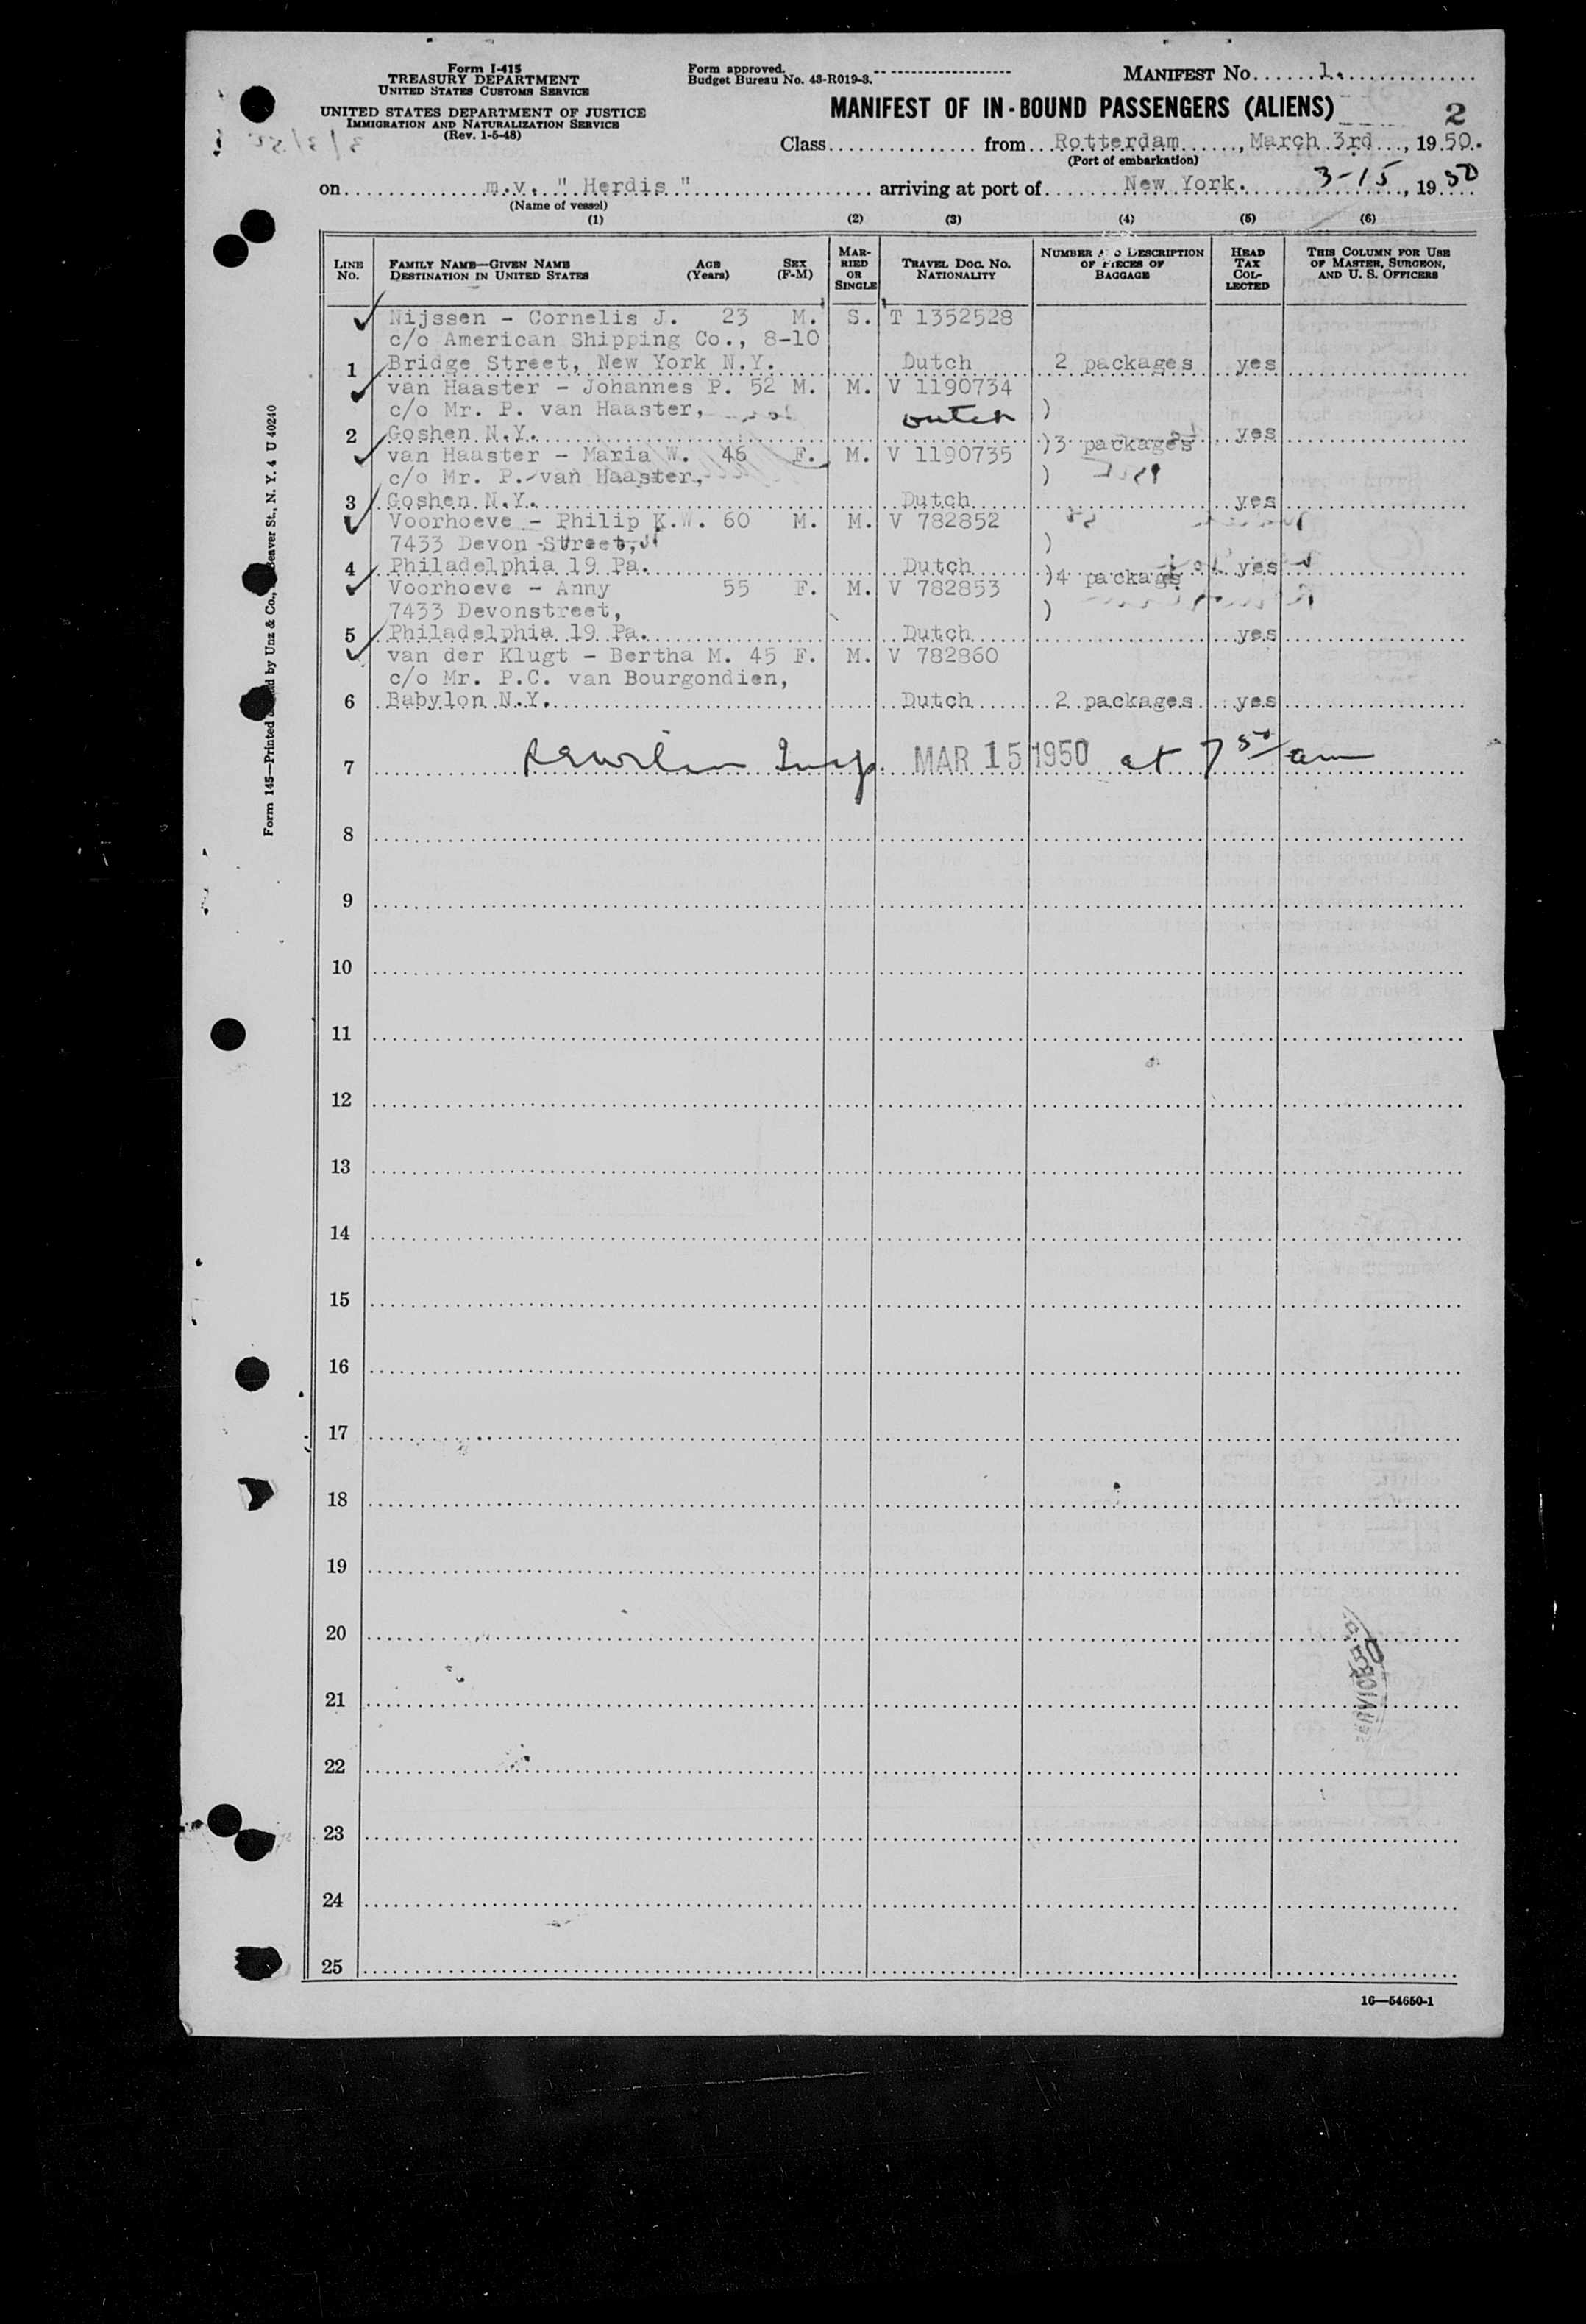 Form I-415
TREASURY DEPARTMENT
UNITED STATES CUSTOMS SERVICE
UNITED STATES DEPARTMENT OF JUSTICE
IMMIGRATION AND NATURALIZATION SERVICE
(Rev. 1-5-48)
Form approved.
Budget Bureau No. 43-R019-3.
MANIFEST NO. 1.
MANIFEST OF IN-BOUND PASSENGERS (ALIENS)
2
Class from Rotterdam, March 3rd, 1950.
(Port of embarkation)
on m.v. " Herdis " arriving at port of New York. 3-15, 1950
(Name of vessel)
(1) (2) (3) (4) (5) (6)
LINE NO. FAMILY NAME—GIVEN NAME DESTINATION IN UNITED STATES AGE (Years) SEX (F-M) MARRIED OR SINGLE TRAVEL DOC. NO. NATIONALITY NUMBER AND DESCRIPTION OF PIECES OF BAGGAGE HEAD TAX COLLECTED THIS COLUMN FOR USE OF MASTER, SURGEON, AND U. S. OFFICERS
Nijssen - Cornelis J. 23 M. S. T 1352528
c/o American Shipping Co., 8-10
1 Bridge Street, New York N.Y. Dutch 2 packages yes
van Haaster - Johannes P. 52 M. M. V 1190734
c/o Mr. P. van Haaster, Dutch )
2 Goshen N.Y. )3 packages yes
van Haaster - Maria W. 46 F. M. V 1190735
c/o Mr. P. van Haaster, )
3 Goshen N.Y. Dutch yes
Voorhoeve - Philip K.W. 60 M. M. V 782852
7433 Devon Street, )
4 Philadelphia 19 Pa. Dutch )4 package yes
Voorhoeve - Anny 55 F. M. V 782853
7433 Devonstreet, )
5 Philadelphia 19 Pa. Dutch yes
van der Klugt - Bertha M. 45 F. M. V 782860
c/o Mr. P.C. van Bourgondien,
6 Babylon N.Y. Dutch 2 packages yes
7 Insp. MAR 15 1950 at 7 50 am
8
9
10
11
12
13
14
15
16
17
18
19
20
21
22
23
24
25
16—54650-1